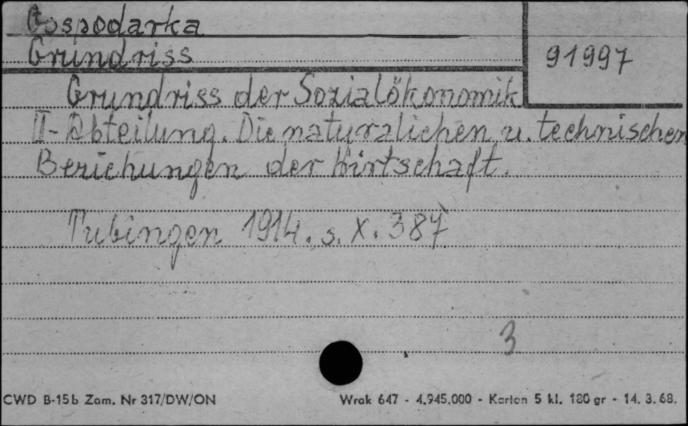 Gospodarka
Grundriss
91997
Grundriss der Sozialökonomik
II-Abteilung. Die naturalichen u. technischen
Beziehungen der Wirtschaft.
Tubingen 1914. s. X. 387
3
CWD B-15b Zam. Nr 317/DW/ON
Wrak 647 - 4.945.000 - Karton 5 kl. 180 gr - 14. 3. 68.